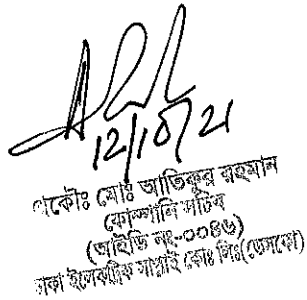 12/10/21
প্রকৌঃ মোঃ আতিকুর রহমান
কোম্পানি সচিব
(আইডি নং-০০৪৬)
ঢাকা ইলেকট্রিক সাপ্লাই কোঃ লিঃ(ডেসকো)